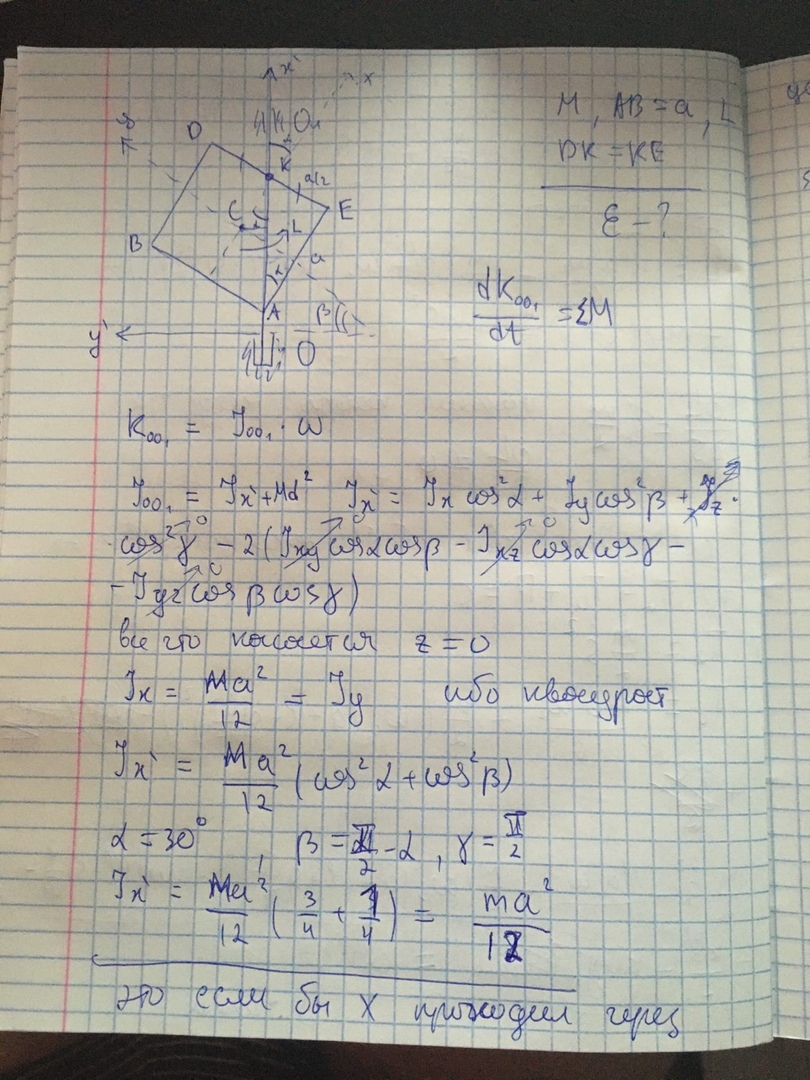 M, AB = a, L
DK = KE
ε - ?
x'
x
y
O₁
D
K
a/2
C
E
B
L
a
α
A
β
y'
O
dK₀₀₁/dt = ΣM
K₀₀₁ = J₀₀₁ · ω
J₀₀₁ = Jx' + Md² Jx' = Jx cos²α + Jy cos²β + Jz ·
· cos²γ⁰ - 2 (Jxy⁰ cosα cosβ - Jxz⁰ cosα cosγ -
- Jyz⁰ cosβ cosγ)
все что касается z = 0
Jx = Ma²/12 = Jy ибо квадрат
Jx' = Ma²/12 (cos²α + cos²β)
α = 30°, β = π/2 - α, γ = π/2
Jx' = Ma²/12 (3/4 + 1/4) = ma²/12
это если бы X проходил через